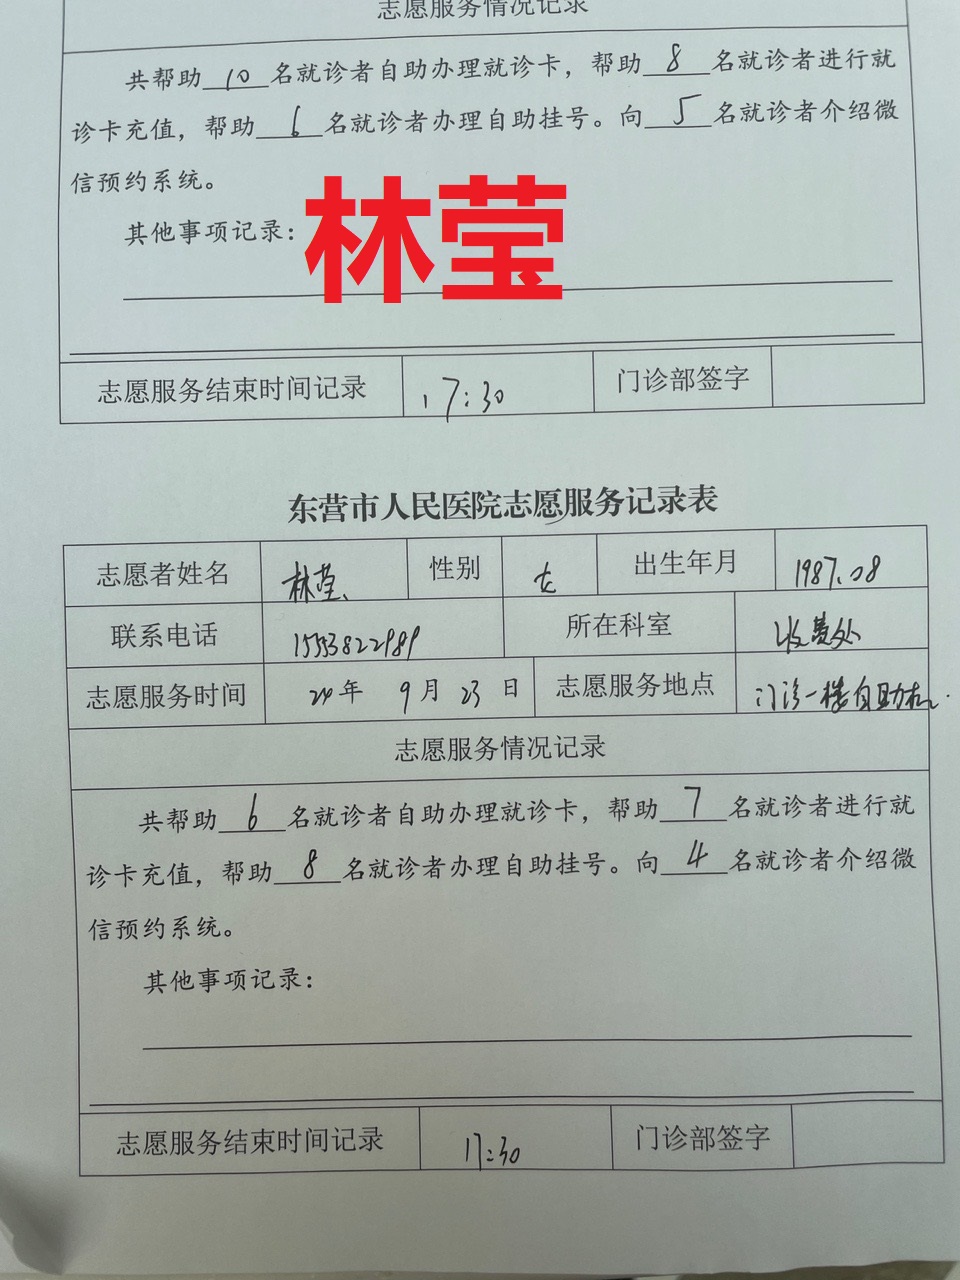 志愿服务情况记录
共帮助10名就诊者自助办理就诊卡，帮助8名就诊者进行就
诊卡充值，帮助6名就诊者办理自助挂号。向5名就诊者介绍微
信预约系统。
其他事项记录：
林莹
志愿服务结束时间记录 17:30 门诊部签字
东营市人民医院志愿服务记录表
志愿者姓名 林莹 性别 女 出生年月 1987.08
联系电话 15553822989 所在科室 收费处
志愿服务时间 24年 9月 23日 志愿服务地点 门诊一楼自助机
志愿服务情况记录
共帮助6名就诊者自助办理就诊卡，帮助7名就诊者进行就
诊卡充值，帮助8名就诊者办理自助挂号。向4名就诊者介绍微
信预约系统。
其他事项记录：
志愿服务结束时间记录 17:30 门诊部签字